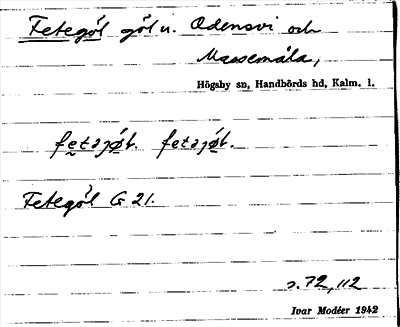 Fetegöl göl u. Odensvi och
Massemåla,
Högsby sn, Handbörds hd, Kalm. l.
Fetegöl G 21.
s. 72, 112
Ivar Modéer 1942